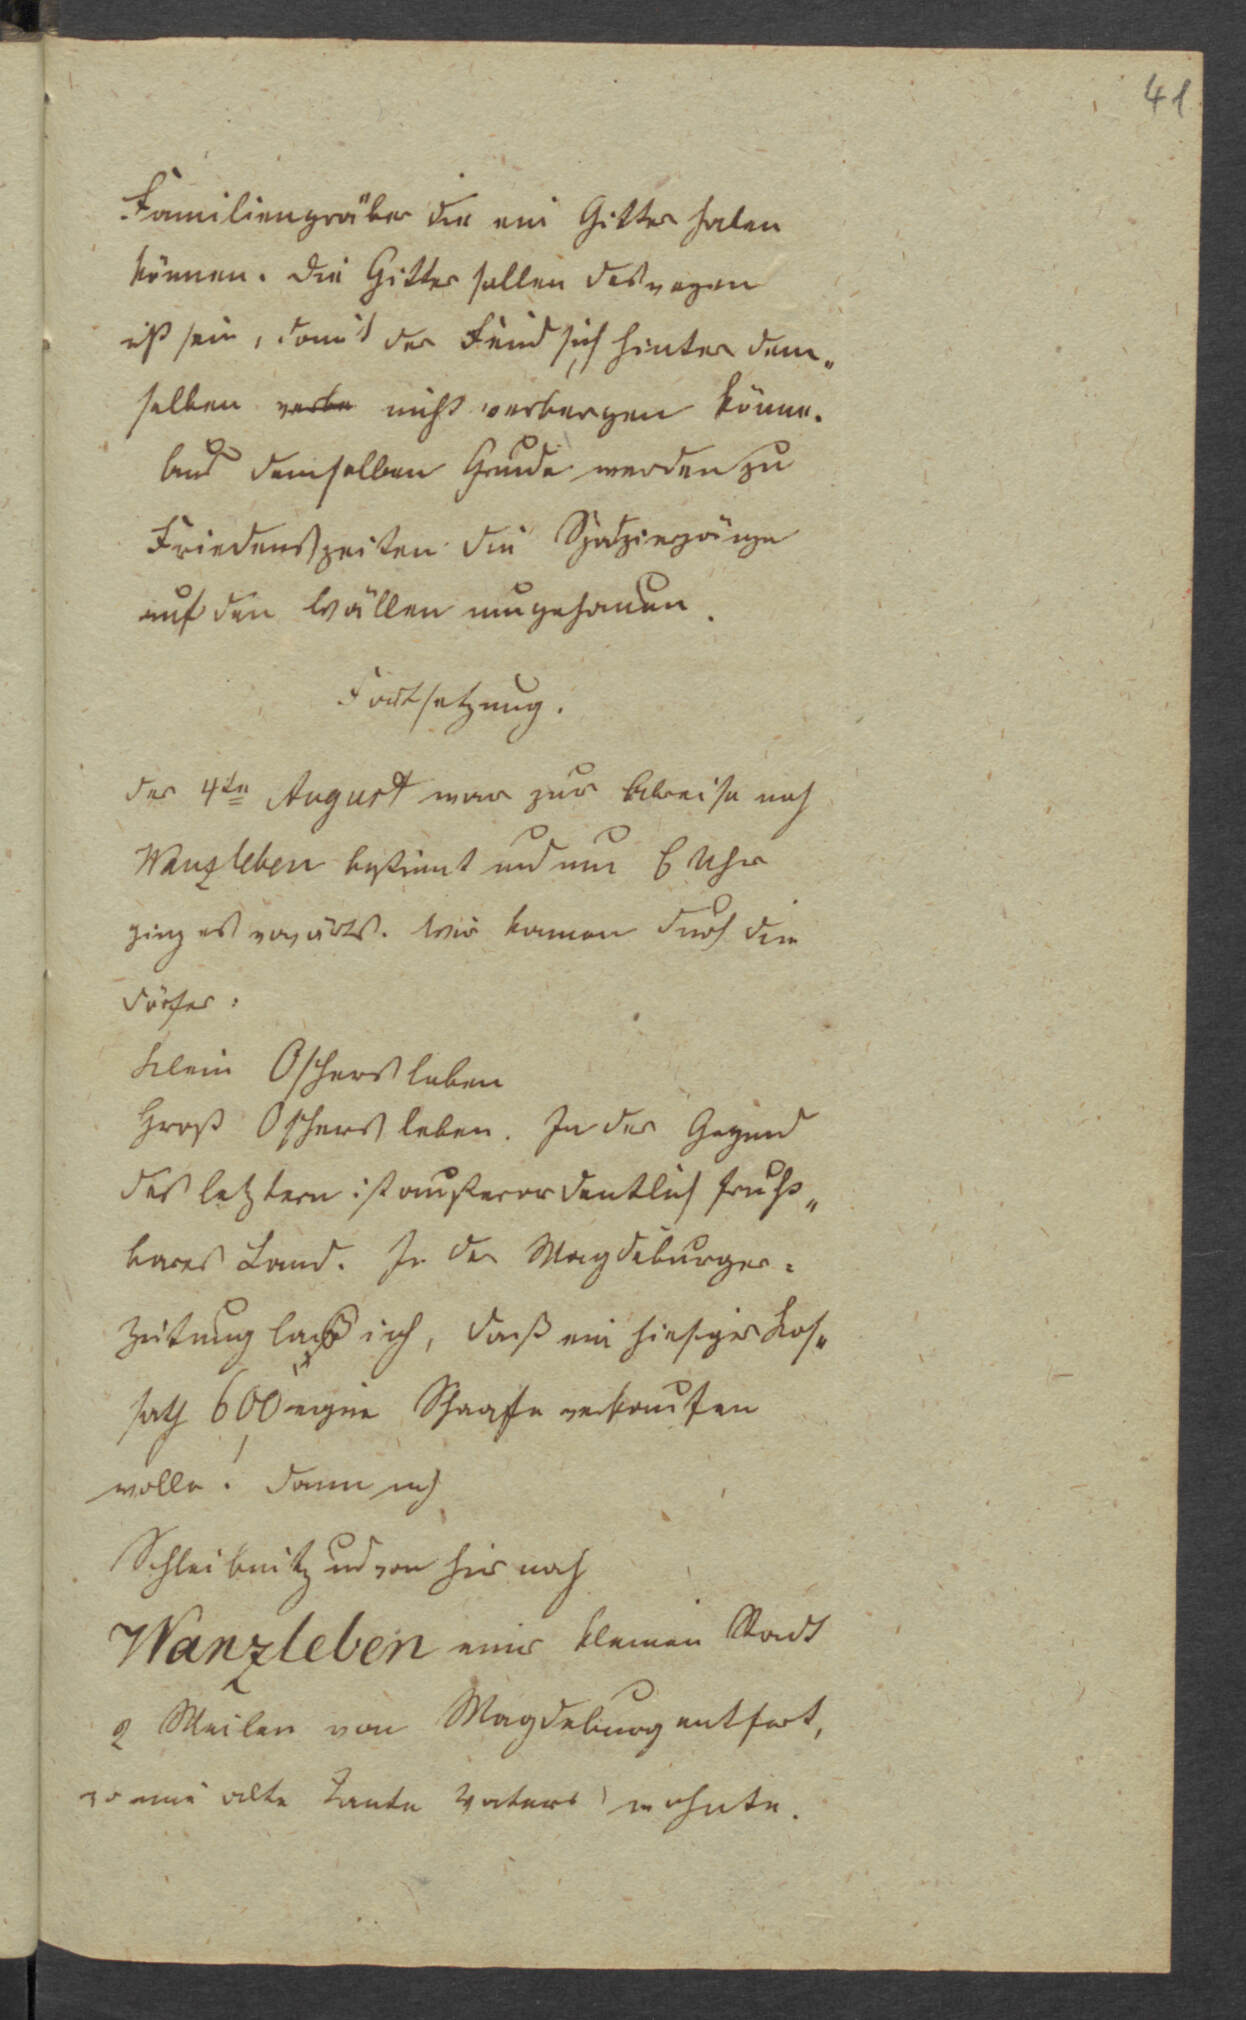 41
Familiengräber die ein Gitter haben
können. Die Gitter sollen deswegen
nicht sein, damit der Feind sich hinter dem„
selben verbe nicht verbergen könne.
Aus demselben Grunde werden zu
Friedenszeiten die Spatziergänge
auf den Wällen umgehauen.
Fortsetzung.
Der 4te August war zur Abreise nach
Wanzleben bestimmt und um 6 Uhr
ging es vorwärts. Wir kamen durch die
Dörfer:
Klein Oschersleben
Groß Oschersleben. In der Gegend
des letztern ist außerordentlich frucht„
bares Land. In der Magdeburger=
Zeitung las ich, daß ein hiesiger Kos„
sath 600 eigne Schaafe verkaufen
wolle! Dann nach
Schleibnitz und von hier nach
Wanzleben einer kleinen Stadt
2 Meilen von Magdeburg entfernt,
wo eine alte Tante Vaters wohnte.